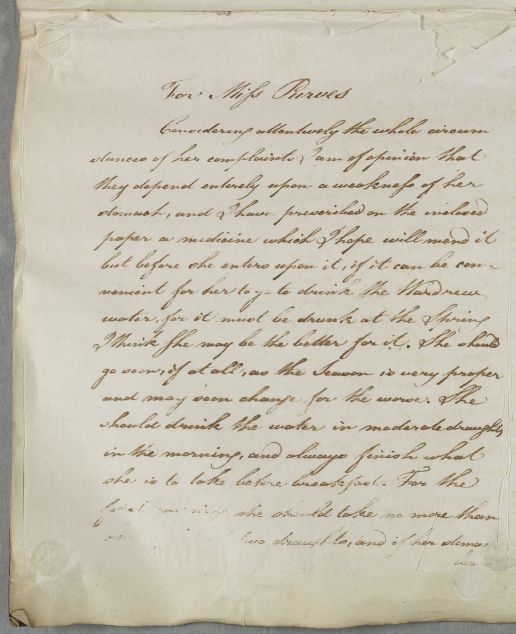 For Miss Purves
Considering attentively the whole circum
stances of her complaints I am of opinion that
they depend entirely upon a weakness of her
stomach, and I have prescribed on the inclosed
paper a medicine which I hope will mend it
but before she enters upon it, if it can be con-
venient for her to go to drink the Hardrew
water, for it must be drunk at the Spring
I think she may be the better for it. She should
go soon, if at all, as the Season is very proper
and may soon change for the worse. She
should drink the water in moderate draughts
in the morning, and always finish what
she is to take before breakfast. For the
first she should take no more than
two draughts, and if her stoma